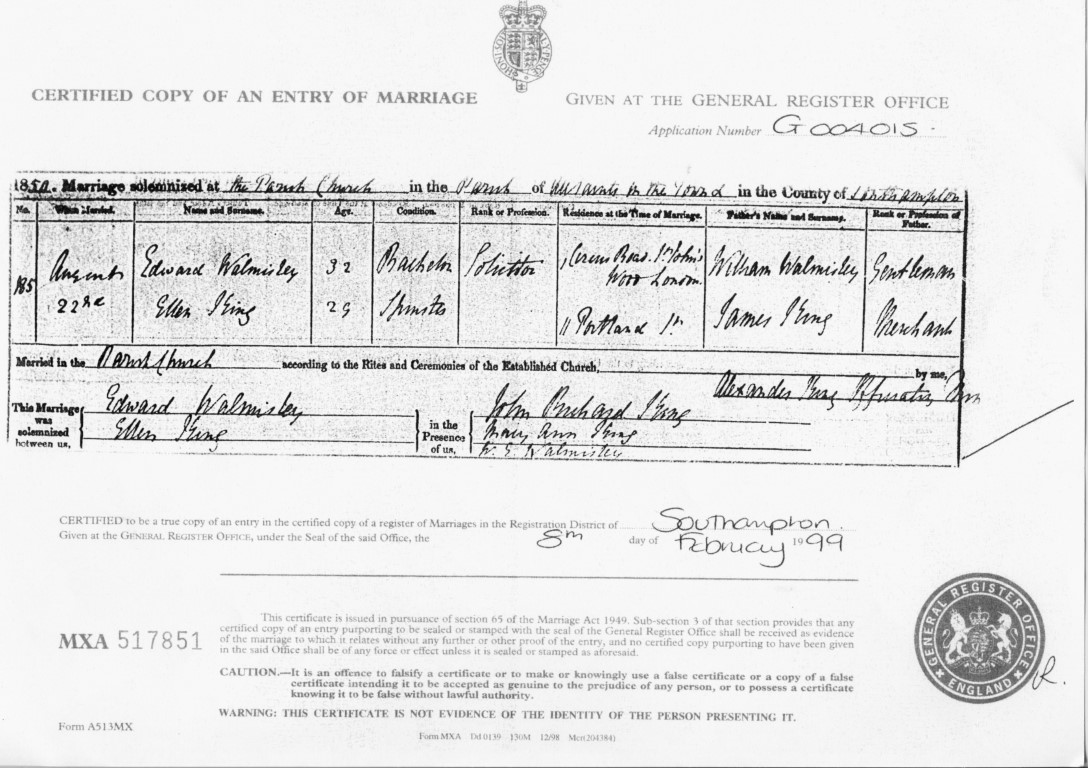 HONI SOIT
Y PENSE
CERTIFIED COPY OF AN ENTRY OF MARRIAGE
GIVEN AT THE GENERAL REGISTER OFFICE
Application Number G004015.
1850. Marriage solemnized at the Parish Church in the Parish of All Saints in the Town in the County of Southampton
No. When Married. Name and Surname. Age. Condition. Rank or Profession. Residence at the Time of Marriage. Father's Name and Surname. Rank or Profession of Father.
185 August 22nd Edward Walmisley 32 Bachelor Solicitor 1 Circus Road St John's Wood London. William Walmisley Gentleman
Ellen King 29 Spinster 11 Portland St James King Merchant
Married in the Parish Church according to the Rites and Ceremonies of the Established Church, by me,
Alexander King
This Marriage was solemnized between us, Edward Walmisley Ellen King in the Presence of us, John Richard King Mary Ann King W. G. Walmisley
CERTIFIED to be a true copy of an entry in the certified copy of a register of Marriages in the Registration District of Southampton.
Given at the GENERAL REGISTER OFFICE, under the Seal of the said Office, the 8th day of February 1999
MXA 517851
This certificate is issued in pursuance of section 65 of the Marriage Act 1949. Sub-section 3 of that section provides that any
certified copy of an entry purporting to be sealed or stamped with the seal of the General Register Office shall be received as evidence
of the marriage to which it relates without any further or other proof of the entry, and no certified copy purporting to have been given
in the said Office shall be of any force or effect unless it is sealed or stamped as aforesaid.
CAUTION.—It is an offence to falsify a certificate or to make or knowingly use a false certificate or a copy of a false
certificate intending it to be accepted as genuine to the prejudice of any person, or to possess a certificate
knowing it to be false without lawful authority.
WARNING: THIS CERTIFICATE IS NOT EVIDENCE OF THE IDENTITY OF THE PERSON PRESENTING IT.
GENERAL REGISTER OFFICE
ENGLAND
R.
Form A513MX
Form MXA Dd 0139 130M 12/98 Mcr(204384)